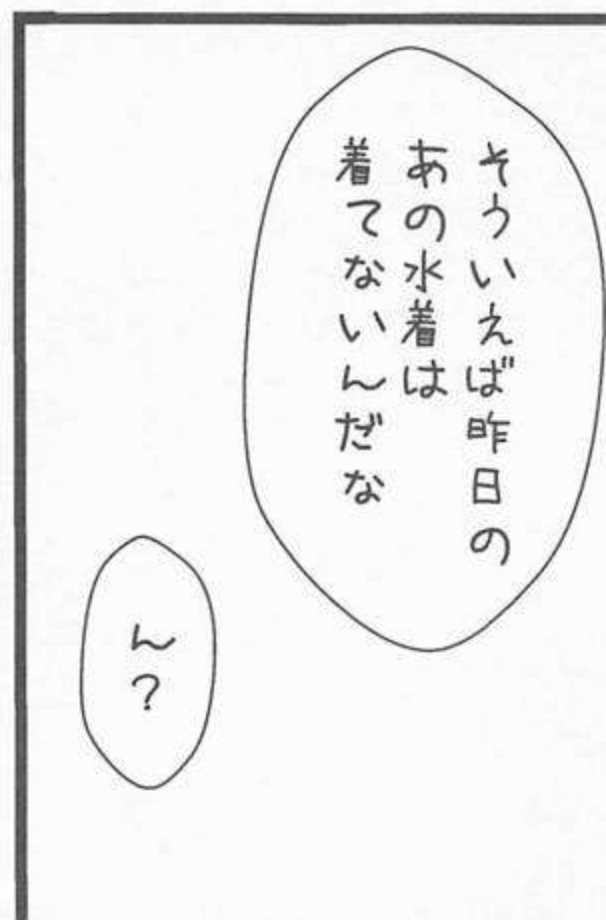 そういえば昨日の
あの水着は
着てないんだな
ん?